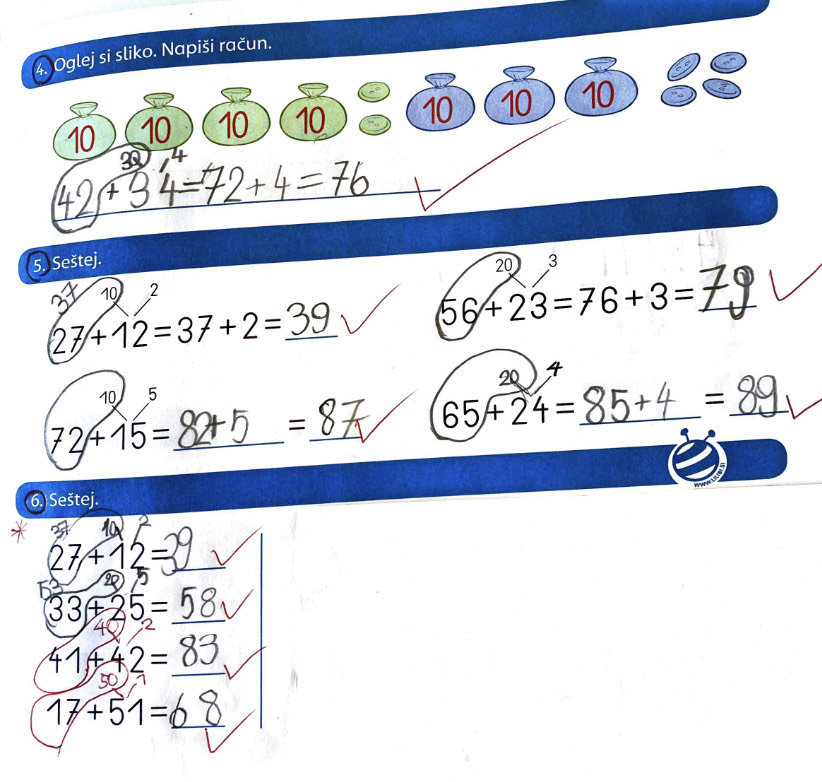 4. Oglej si sliko. Napiši račun.
10 10 10 10 10 10 10
30 4
42 + 34 = 72 + 4 = 76
5. Seštej.
37 10 2
27 + 12 = 37 + 2 = 39
20 3
56 + 23 = 76 + 3 = 79
10 5
72 + 15 = 82 + 5 = 87
20 4
65 + 24 = 85 + 4 = 89
www.lilibi.si
6. Seštej.
* 37 10 2
27 + 12 = 39
53 20 5
33 + 25 = 58
40 2
41 + 42 = 83
50 1
17 + 51 = 68